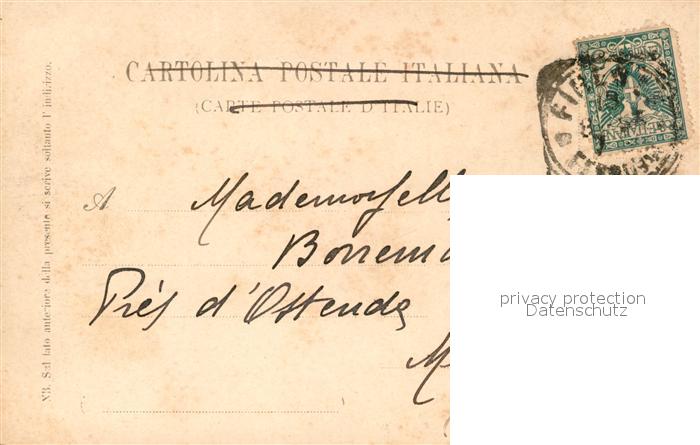 CARTOLINA POSTALE ITALIANA
(CARTE POSTALE D'ITALIE)
A Mademoiselle
Borrema
Près d'Ostende
M
privacy protection
Datenschutz
NB. Sul lato anteriore della presente si scrive soltanto l'indirizzo.